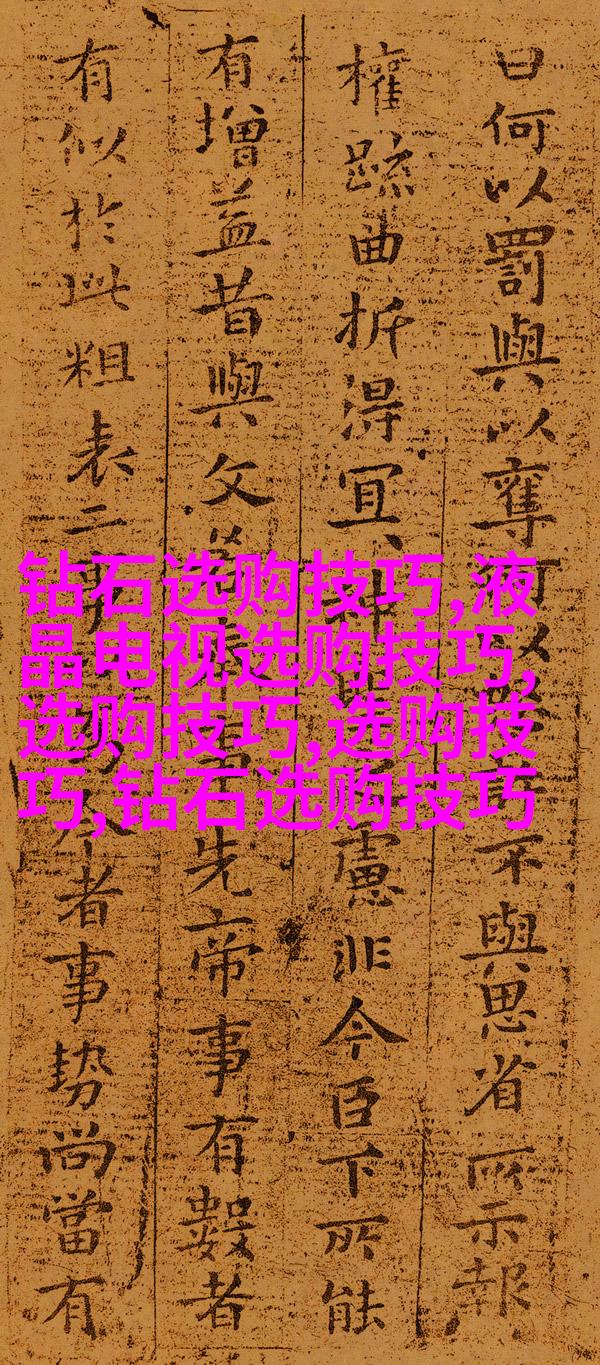 曰何以罰與以奪不與思省所示報
權疏曲折得宜神慮非今臣下所能
有增益昔與文先帝事有數者
有似於此粗表二今者事势尚當有
钻石选购技巧,液
晶电视选购技巧,
选购技巧,选购技
巧,钻石选购技巧